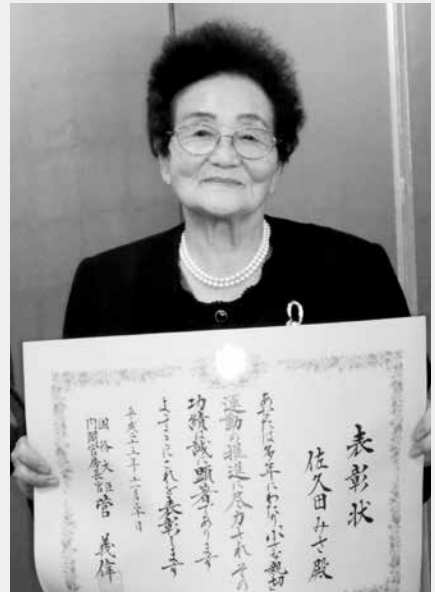 表彰状
佐久田みさ殿
あなたは多年にわたり小さな親切
運動の推進に尽力されその
功績は誠に顕著であります
よってここにこれを表彰します
平成二十五年十一月
国務大臣
内閣官房長官 菅 義偉